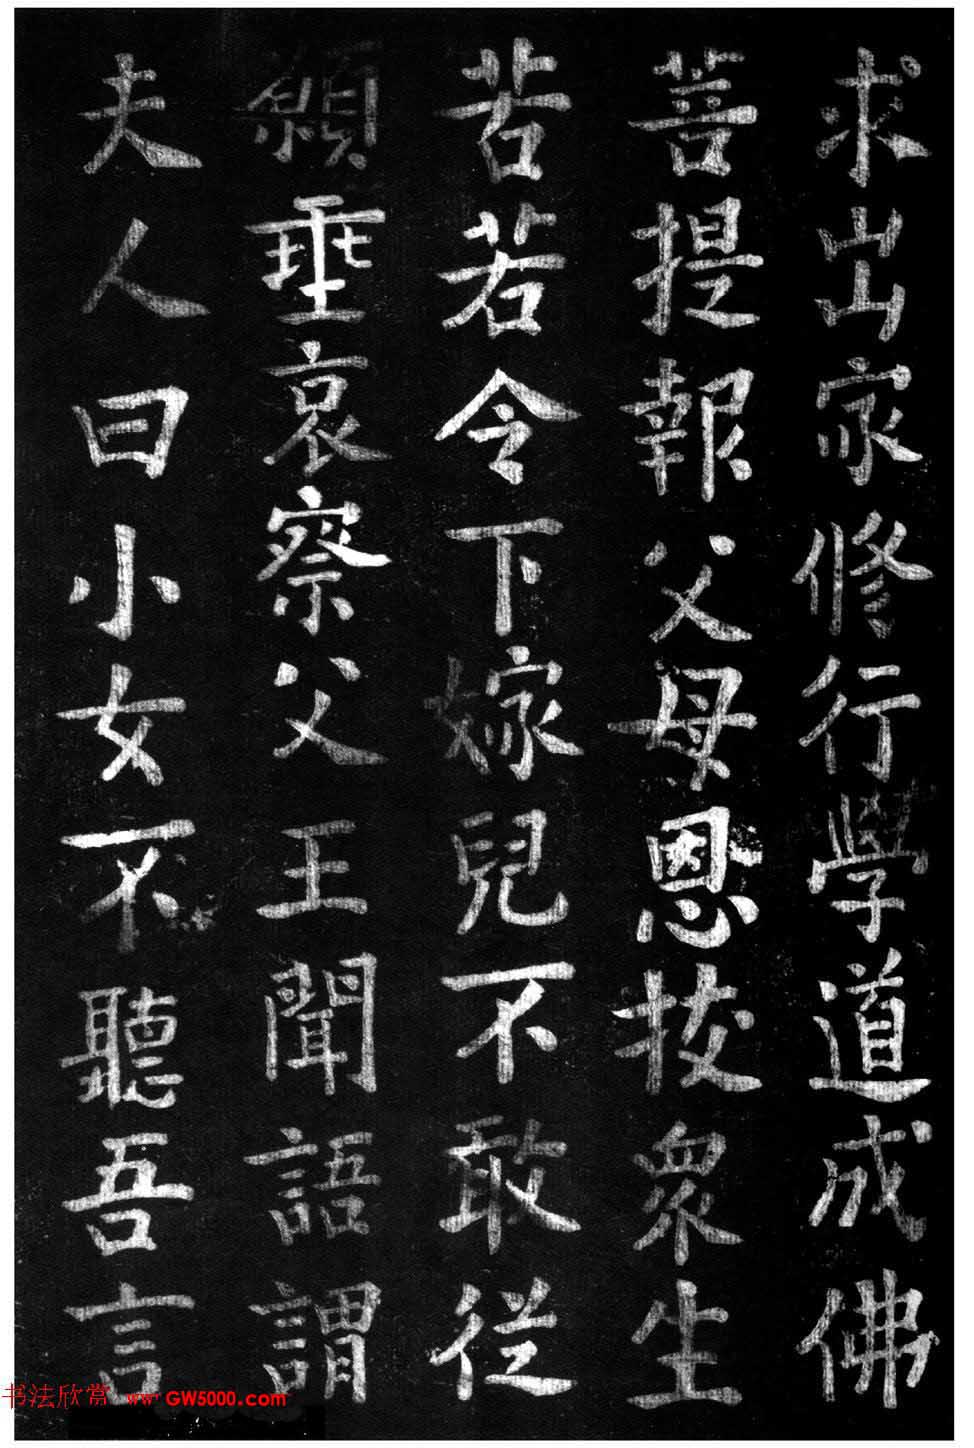 求出家修行學道成佛
菩提報父母恩拔衆生
苦若令下嫁兒不敢從
願垂哀察父王聞語謂
夫人曰小女不聽吾言
书法欣赏 www.GW5000.com